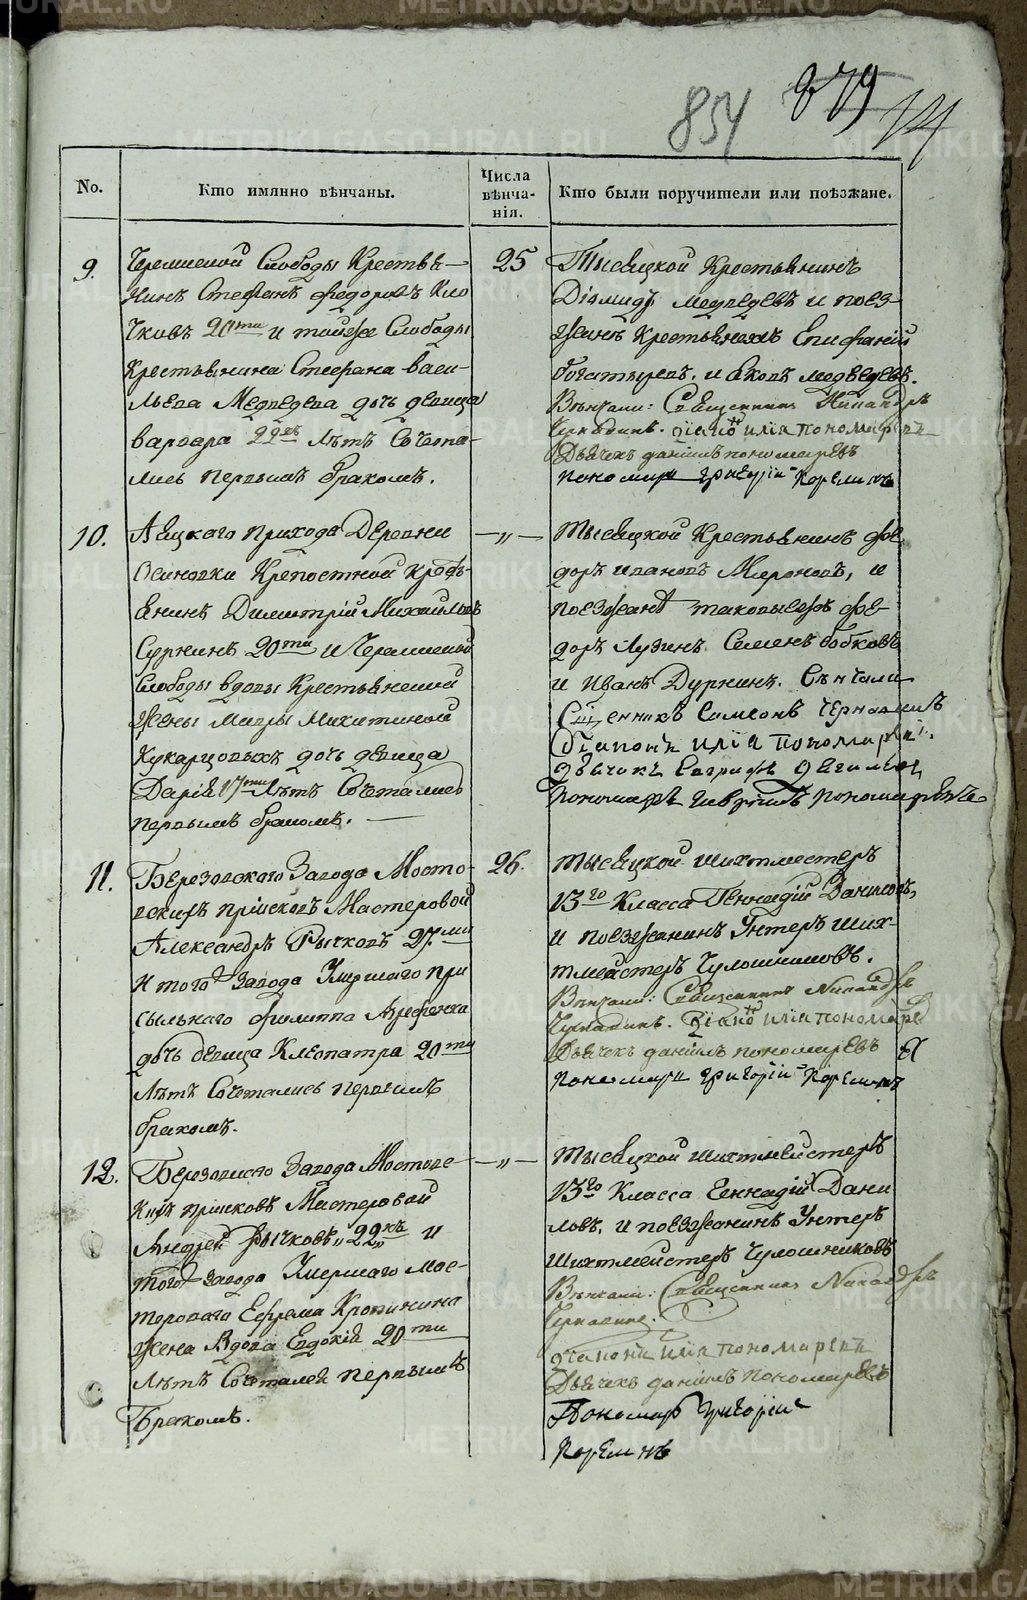 854 879 14
No.
Кто имянно вѣнчаны.
Числа
вѣнча-
нія.
Кто были поручители или поѣзжане.
9.
Черемшской Слободы Крестья-
нинъ Стефанъ Федоровъ Кло
чковъ 20ти и тойже Слободы
Крестьянина Стефана Васи-
льева Медведева дочь девица
Варвара 22хъ Лѣтъ Сочета-
лись первымъ бракомъ.
25
Тысяцкой Крестьянинъ
Діомидъ Медведевъ и поез-
жанъ Крестьянехъ Епифаній
богатыревъ, и Яковъ Медведевъ.
Вѣнчали: Священникъ Никандръ
Чернавинъ. Діаконъ илія пономаревъ
Дьячекъ данилъ пономаревъ
пономарь григорій Корелинъ
10.
Аяцкаго прихода Деревни
Осиновки Крепостной кресть-
янинъ Димитрій Михайловъ
Суркинъ 20ти и Черемшской
Слободы вдовы Крестьянской
жены Мавры Никитиной
Кукарцовыхъ дочь девица
Дарія 17ти Лѣтъ Сочетались
первымъ бракомъ.
— „ —
Тысяцкой Крестьянинъ фе
доръ ивановъ Мироновъ, и
поезжанъ таковыежъ фе-
доръ Лузинъ Семенъ бобковъ
и Иванъ Дуркинъ. Вѣнчали
Священникъ Симеонъ Чернавинъ
діаконъ илія пономаревъ.
дьячикъ
пономарь гаврилъ пономаревъ
11.
Березовскаго Завода Мосто-
вскихъ пріисковъ Мастеровой
Александръ Рычковъ 27ми
и того завода Умршаго при
сыльнаго филиппа Арефьева
дочь девица Клеопатра 20ти
Лѣтъ Сочетались первымъ
бракомъ.
26.
Тысяцкой шихтместеръ
13го Класса Геннадій Даниловъ,
и поезжанинъ Унтеръ ших-
тмейстеръ Чулошниковъ.
Вѣнчали: Священникъ Никандръ
Чернавинъ. Діаконъ илія пономаре
Дьячекъ данилъ пономаревъ въ
пономарь григорій Корелинъ
12.
Березовскаго Завода Мостовс-
кихъ пріисковъ Мастеровой
Андрей Рычковъ „22хъ и
того завода Умершаго Мас-
тероваго Ефрема Кропинина
жена Вдова Евдокія 20ти
Лѣтъ Сочтались первымъ
Бракомъ.
— „ —
Тысяцкой шихтмейстеръ
13го Класса Геннадій Дани
ловъ. и поезжанинъ Унтеръ
шихтмейстеръ Чулошниковъ
Вѣнчали: Священникъ Никандръ
Чернавинъ.
діаконъ илія пономаревъ
Дьячекъ данилъ пономаревъ
Пономарь григорій
Корелинъ
METRIKI.GASO-URAL.RU